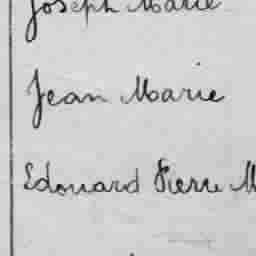 Joseph Marie
Jean Marie
Edouard Pierre M